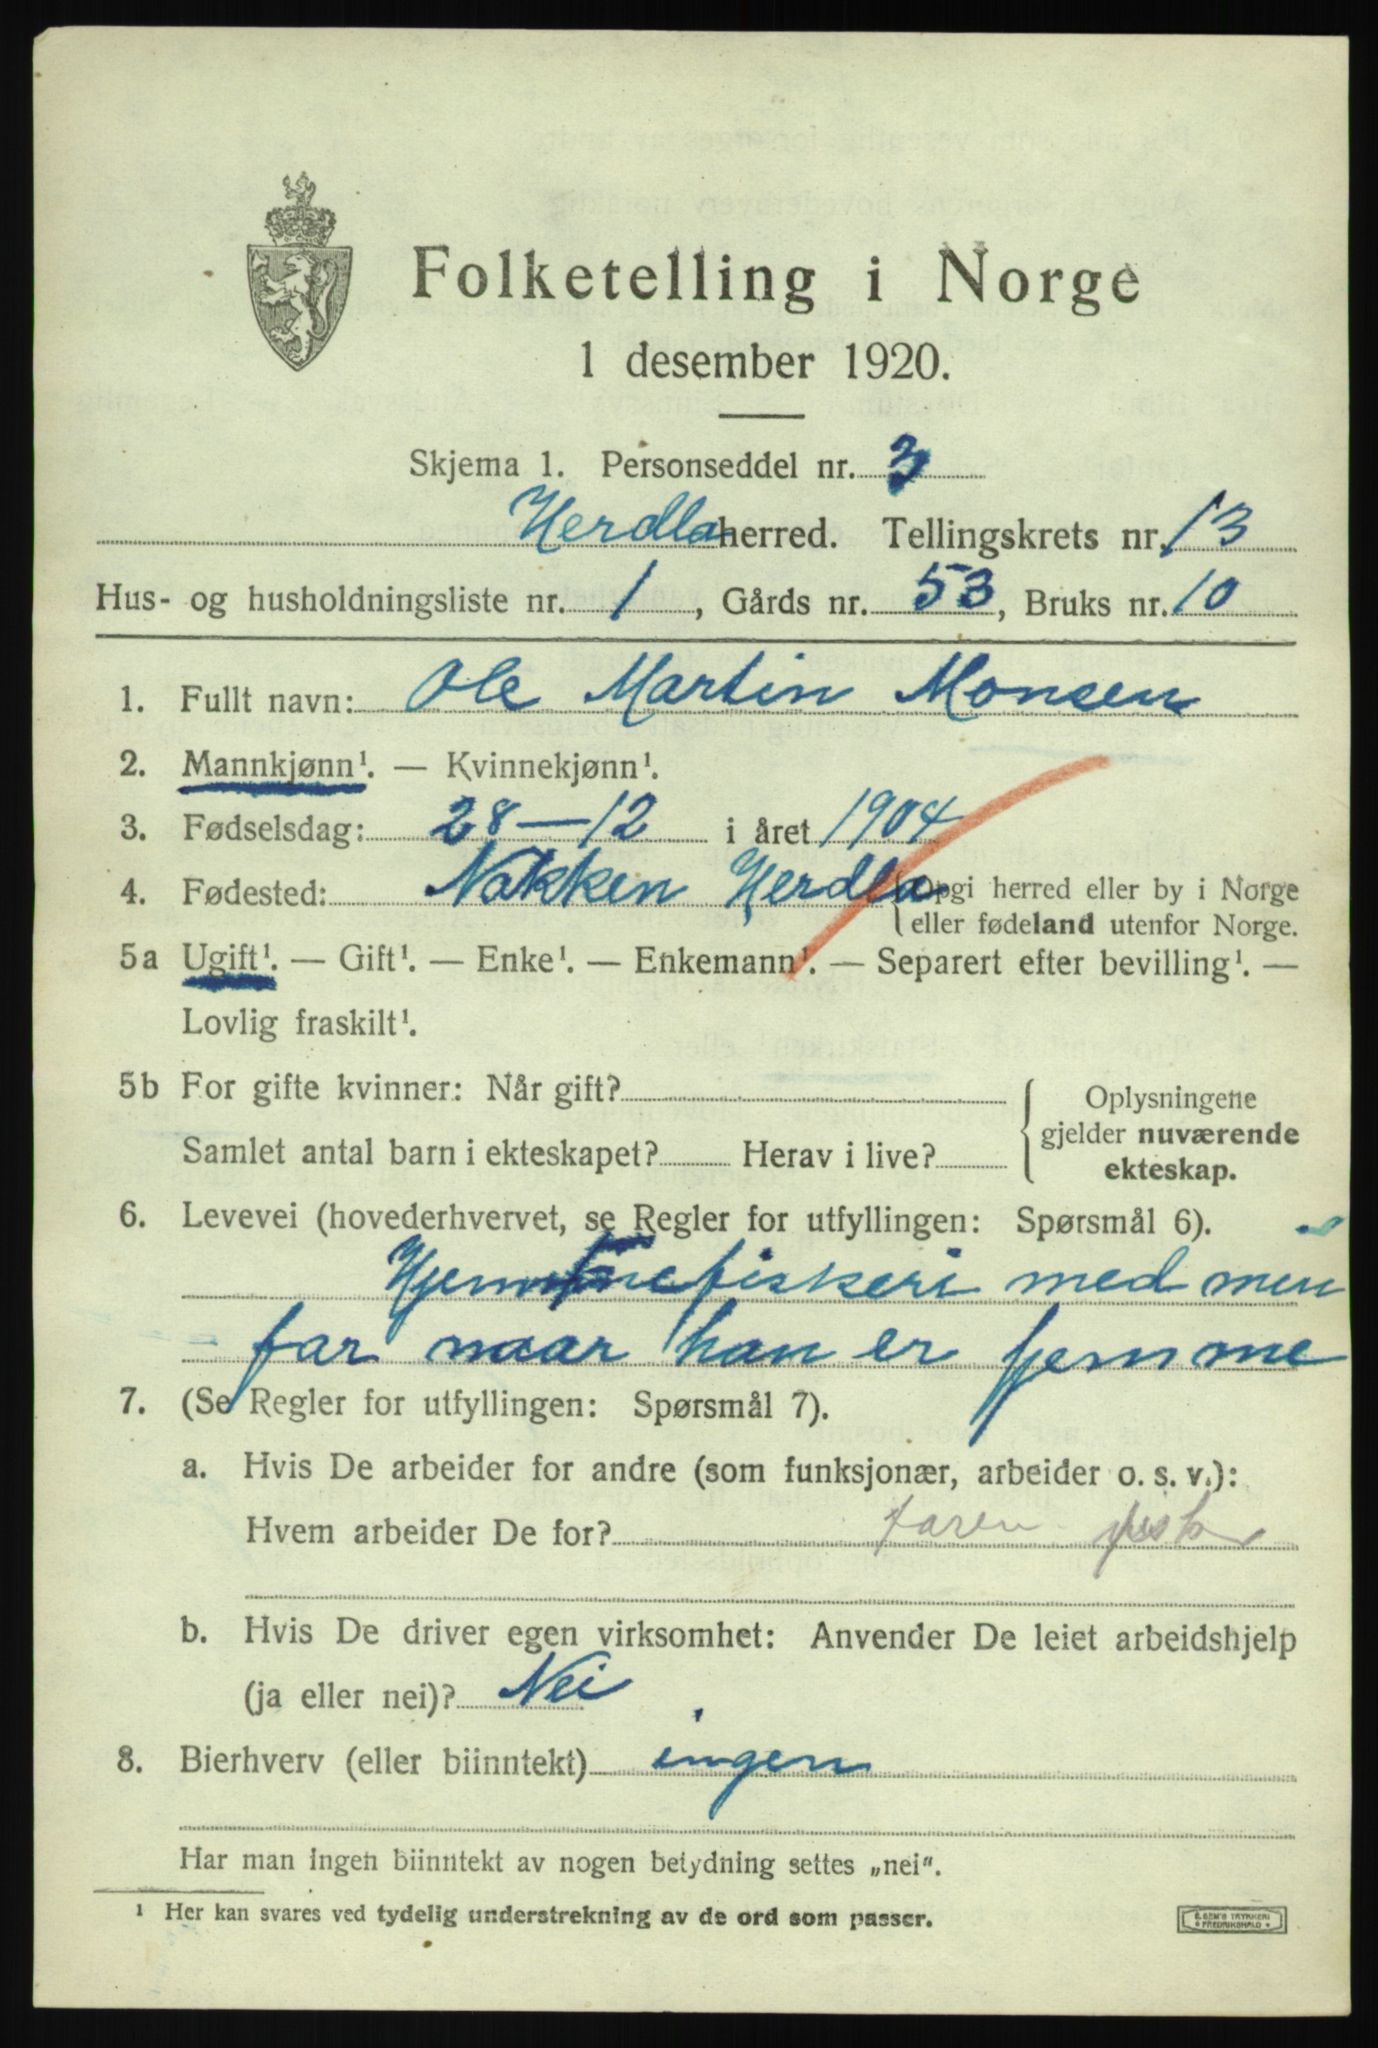 Folketelling i Norge
1 desember 1920.
Skjema 1. Personseddel nr. 3
Herdla herred. Tellingskrets nr. 13
Hus- og husholdningsliste nr. 1, Gårds nr. 53, Bruks nr. 10
1. Fullt navn: Ole Martin Monsen
2. Mannkjønn¹. — Kvinnekjønn¹.
3. Fødselsdag: 28—12 i året 1904
4. Fødested: Nakken Herdla {Opgi herred eller by i Norge
eller fødeland utenfor Norge.
5a Ugift¹. — Gift¹. — Enke¹. — Enkemann¹. — Separert efter bevilling¹. —
Lovlig fraskilt¹.
5b For gifte kvinner: Når gift?
Samlet antal barn i ekteskapet? Herav i live?
Oplysningene
gjelder nuværende
ekteskap.
6. Levevei (hovederhvervet, se Regler for utfyllingen: Spørsmål 6).
Hjemmefiskeri med min
far naar han er hjemme
7. (Se Regler for utfyllingen: Spørsmål 7).
a. Hvis De arbeider for andre (som funksjonær, arbeider o. s. v.):
Hvem arbeider De for? faren
b. Hvis De driver egen virksomhet: Anvender De leiet arbeidshjelp
(ja eller nei)? Nei
8. Bierhverv (eller biinntekt) ingen
Har man ingen biinntekt av nogen betydning settes „nei".
¹ Her kan svares ved tydelig understrekning av de ord som passer.